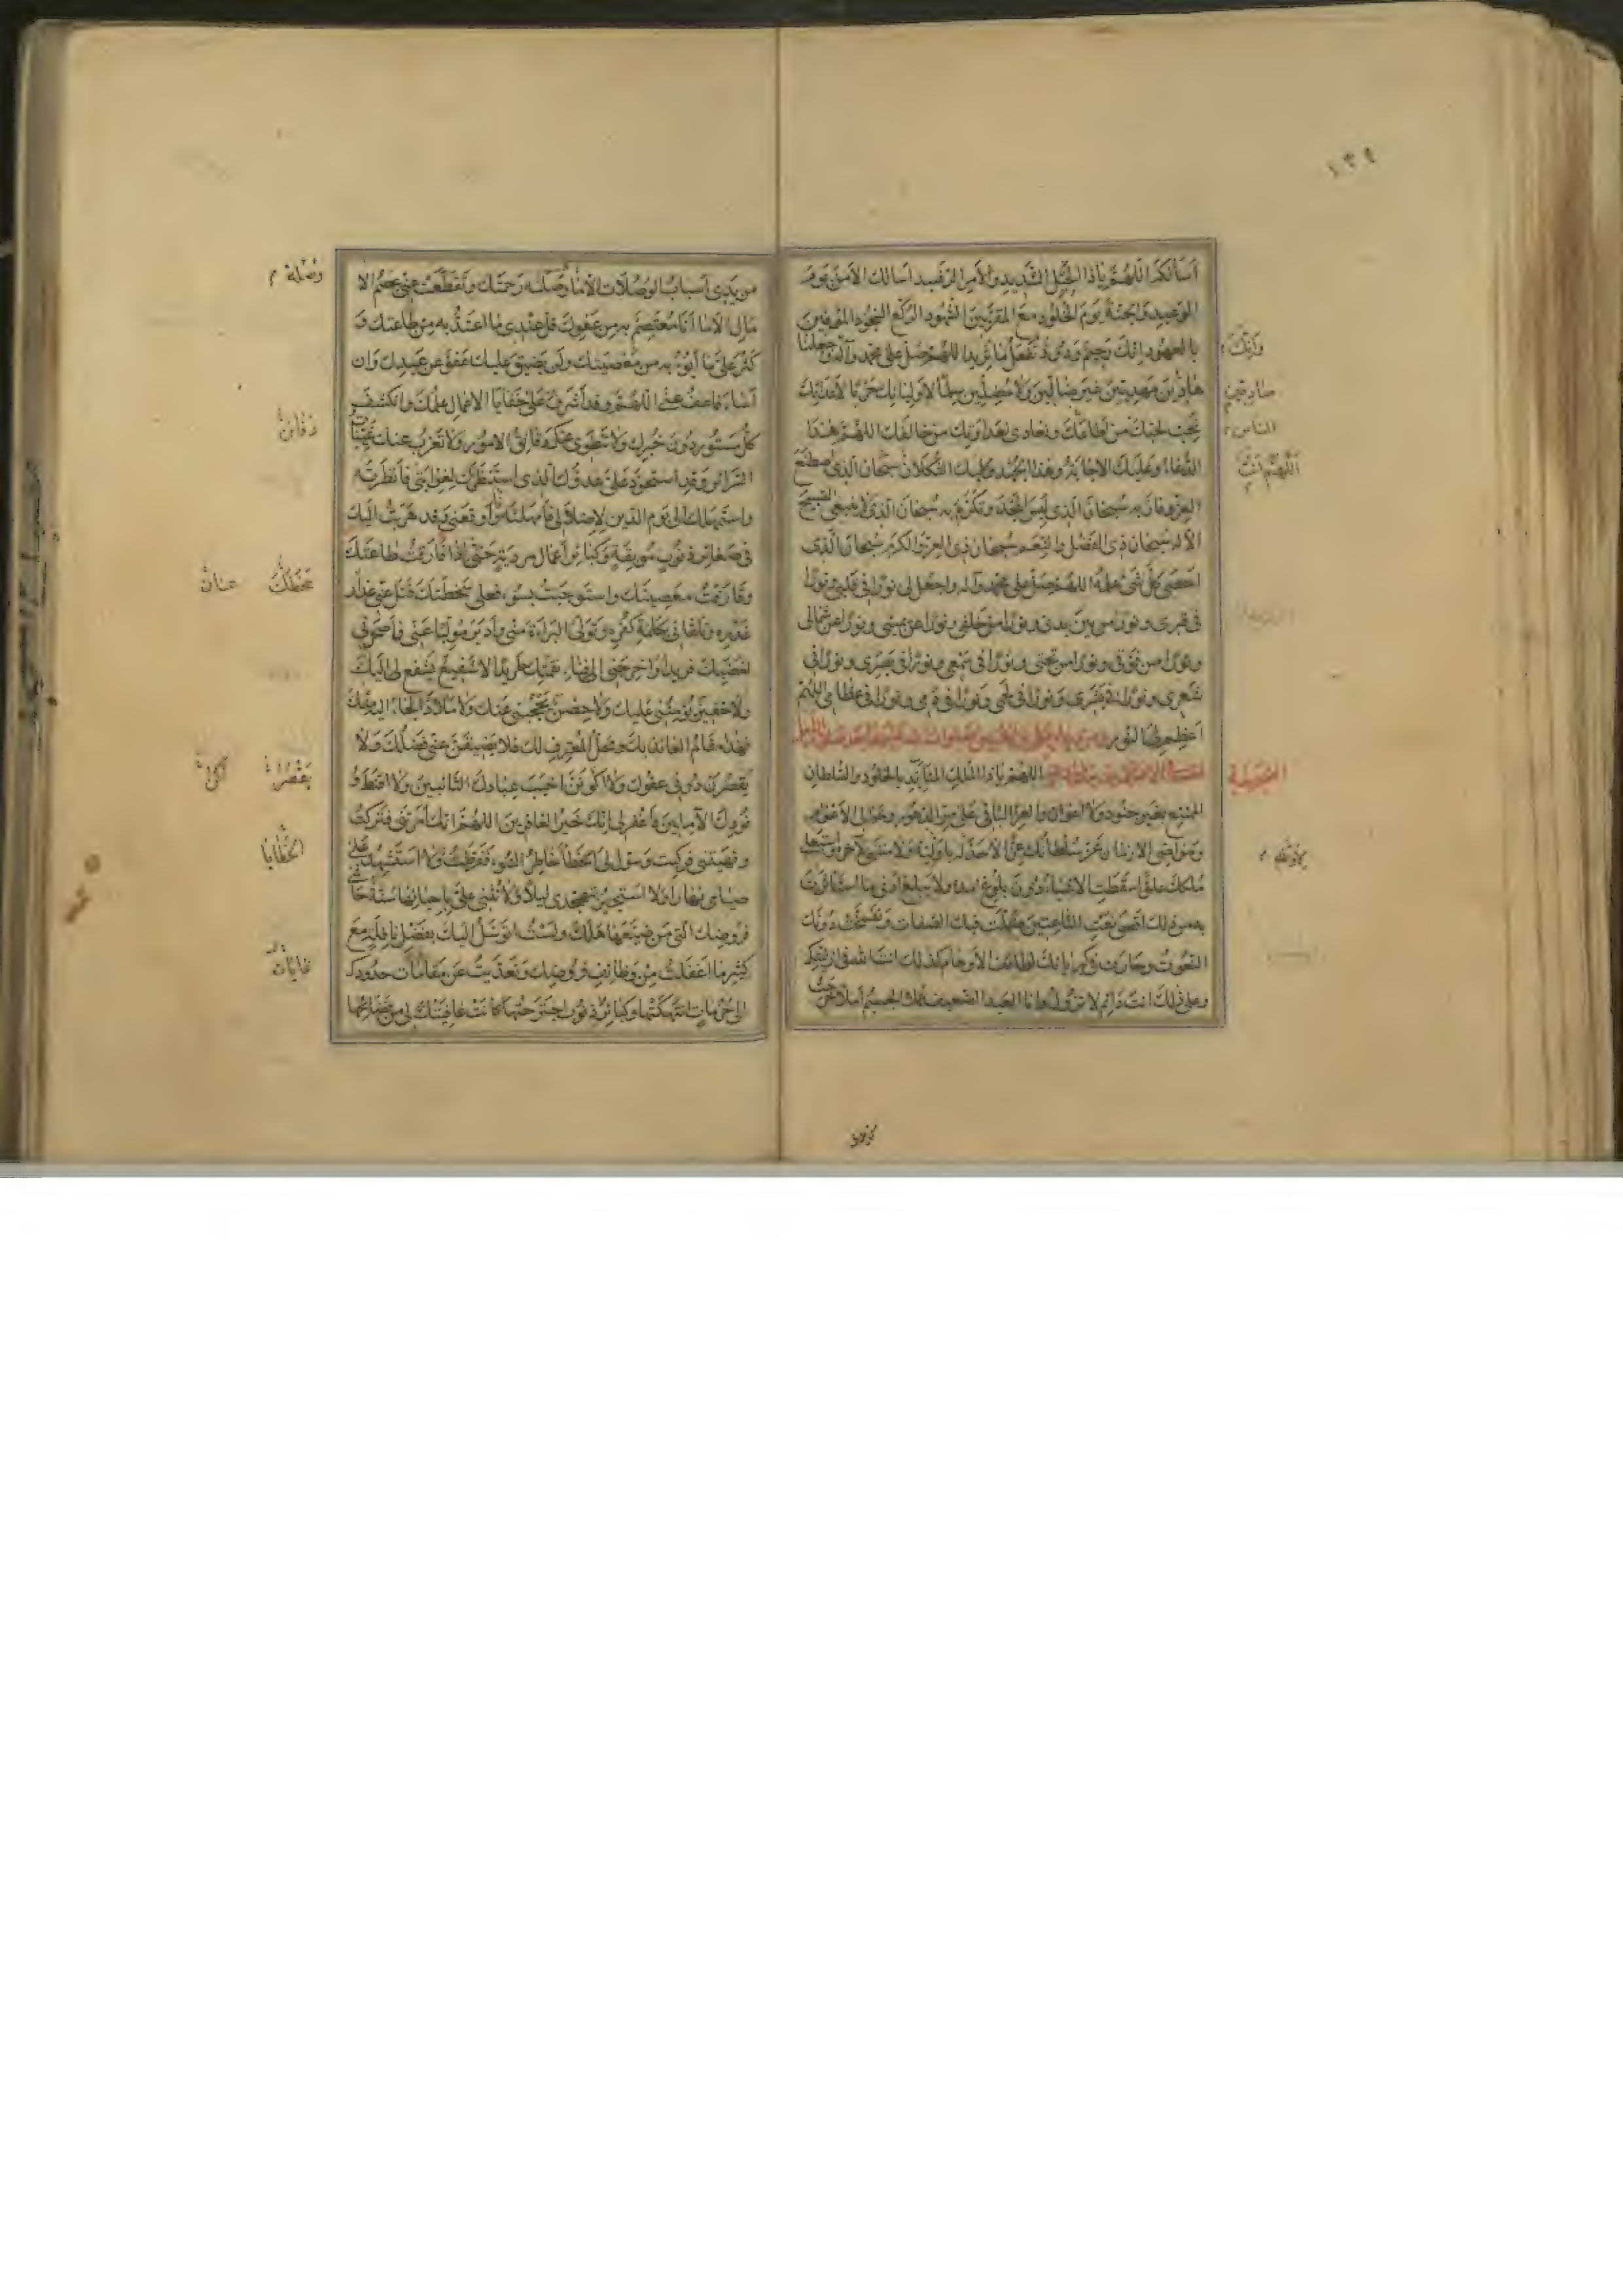 ١٣٩
أسألك اللهم يا ذا الحبل الشديد والأمر الرشيد أسألك الأمن يوم
الوعيد والجنة يوم الخلود مع المقربين الشهود الركع السجود الموفين
بالعهود إنك رحيم ودود تفعل ما تريد اللهم صل على محمد وآله واجعلنا
وإنك
هادين مهديين غير ضالين ولا مضلين سلما لأوليائك حربا لأعدائك
صادقين
نحب بحبك من أطاعك ونعادي بعداوتك من خالفك اللهم هذا
الناس
الدعاء وعليك الإجابة وهذا الجهد وعليك التكلان سبحان الذي اصطنع
اللهم أنت
العز وفاز به سبحان الذي لبس المجد وتكرم به سبحان الذي لا ينبغي التسبيح
إلا له سبحان ذي الفضل والنعم سبحان ذي العز والكرم سبحان الذي
أحصى كل شيء علمه اللهم صل على محمد وآله واجعل لي نورا في قلبي ونورا
في قبري ونورا من بين يدي ونورا من خلفي ونورا عن يميني ونورا عن شمالي
ونورا من فوقي ونورا من تحتي ونورا في سمعي ونورا في بصري ونورا في
شعري ونورا في بشري ونورا في لحمي ونورا في دمي ونورا في عظامي اللهم
أعظم لي النور
اللهم يا ذا الملك المتأبد بالخلود والسلطان
الممتنع بغير جنود ولا أعوان والعز الباقي على مر الدهور وخوالي الأعوام
ومواضي الأزمان عز سلطانك عزا لا حد له بأولية ولا منتهى له بآخرية واستعلى
ملكك علوا سقطت الأشياء دون بلوغ أمده ولا يبلغ أدنى ما استأثرت
به من ذلك أقصى نعت الناعتين ضلت فيك الصفات وتفسخت دونك
النعوت وحارت في كبريائك لطائف الأوهام كذلك أنت الله في أوليتك
وعلى ذلك أنت دائم لا تزول وأنا العبد الضعيف عملا الجسيم أملا خرجت
من يدي أسباب الوصلات إلا ما وصله رحمتك وتقطعت عني عصم الآ
وصلة
مال إلا ما أنا معتصم به من عفوك قل عندي ما أعتد به من طاعتك و
كثر علي ما أبوء به من معصيتك ولن يضيق عليك عفو عن عبدك وإن
أساء فاعف عني اللهم وقد أشرف على خفايا الأعمال علمك وانكشف
كل مستور دون خبرك ولا تنطوي عنك دقائق الأمور ولا تعزب عنك غيبات
السرائر وقد استحوذ علي عدوك الذي استنظرك لغوايتي فأنظرته
واستمهلك إلى يوم الدين لإضلالي فأمهلته وأوقعني وقد هربت إليك
في صغائر ذنوب موبقة وكبائر أعمال مردية حتى إذا فارقت طاعتك
وقارفت معصيتك واستوجبت بسوء فعلي سخطتك فتل عني عذار
سخطك عنان
غدره وتلقاني بكلمة كفره وتولى البراءة مني وأدبر موليا عني فأصحرني
لغضبك فريدا وأخرجني إلى فناء نقمتك طريدا لا شفيع يشفع لي إليك
ولا خفير يؤمنني عليك ولا حصن يحجبني عنك ولا ملاذ ألجأ إليه منك
فهذا مقام العائذ بك ومحل المعترف لك فلا يضيقن عني فضلك ولا
يقصرن دوني عفوك ولا أكونن أخيب عبادك التائبين ولا أقنط وفـ
يقصر أكن
ودك الآملين واغفر لي إنك خير الغافرين اللهم إنك أمرتني فتركت
ونهيتني فركبت وسول لي الخطأ خاطر السوء ففرطت ولا أستشهد على
الخطايا
صيامي نهارا ولا أستجير بتهجدي ليلا ولا تثني علي بإحيائها سنة حاشى
فروضك التي من ضيعها هلك ولست أتوسل إليك بفضل نافلة مع
كثير ما أغفلت من وظائف فروضك وتعديت عن مقامات حدودك
غايات
إلى حرمات انتهكتها وكبائر ذنوب اجترحتها كانت عافيتك لي من فضائحها